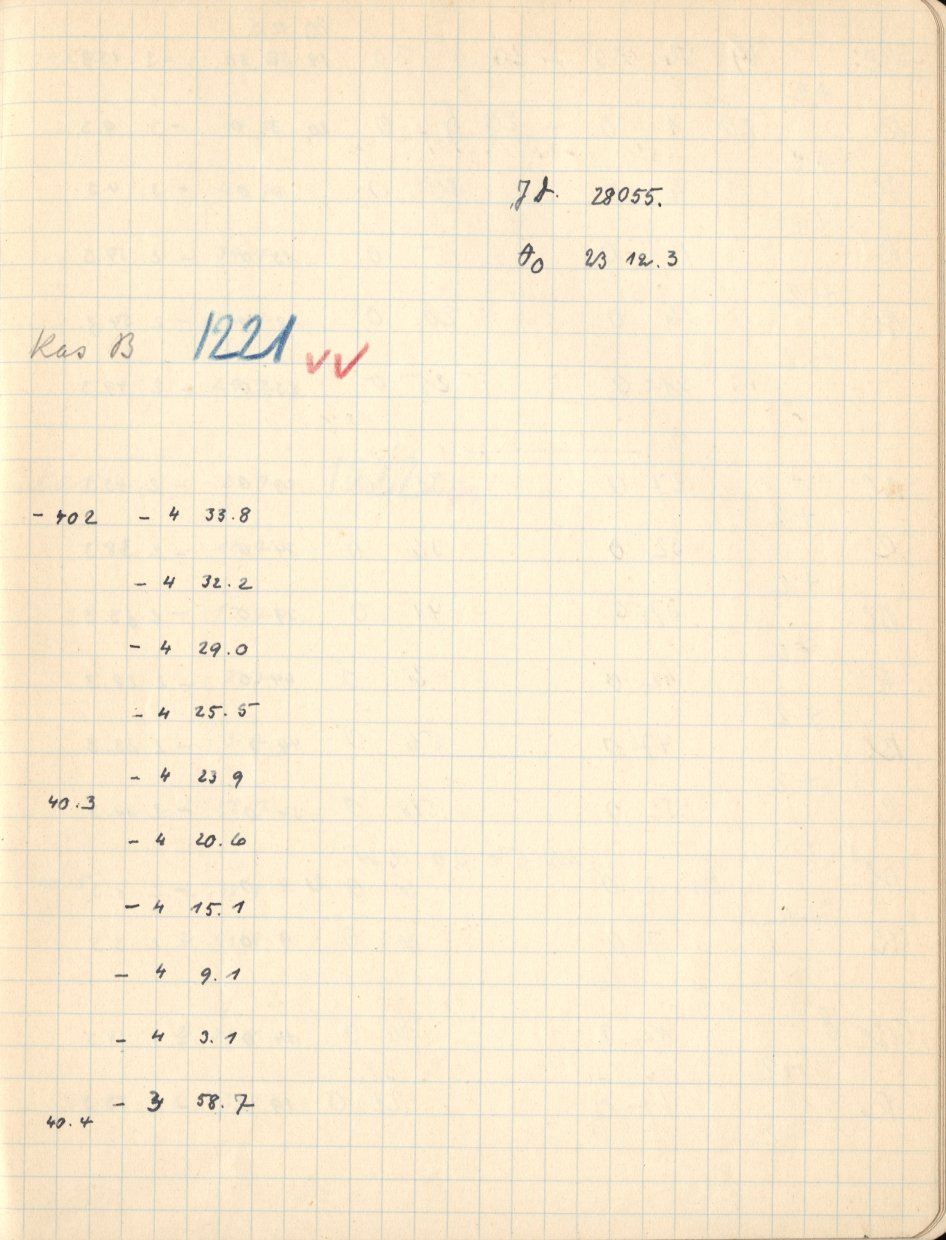 JD. 28055.
θ0 23 12.3
Kas B 1221 vv
- 402 - 4 33.8
- 4 32.2
- 4 29.0
- 4 25.5
- 4 23 9
40.3
- 4 20.6
- 4 15.1
- 4 9.1
- 4 3.1
- 3 58.7
40.4